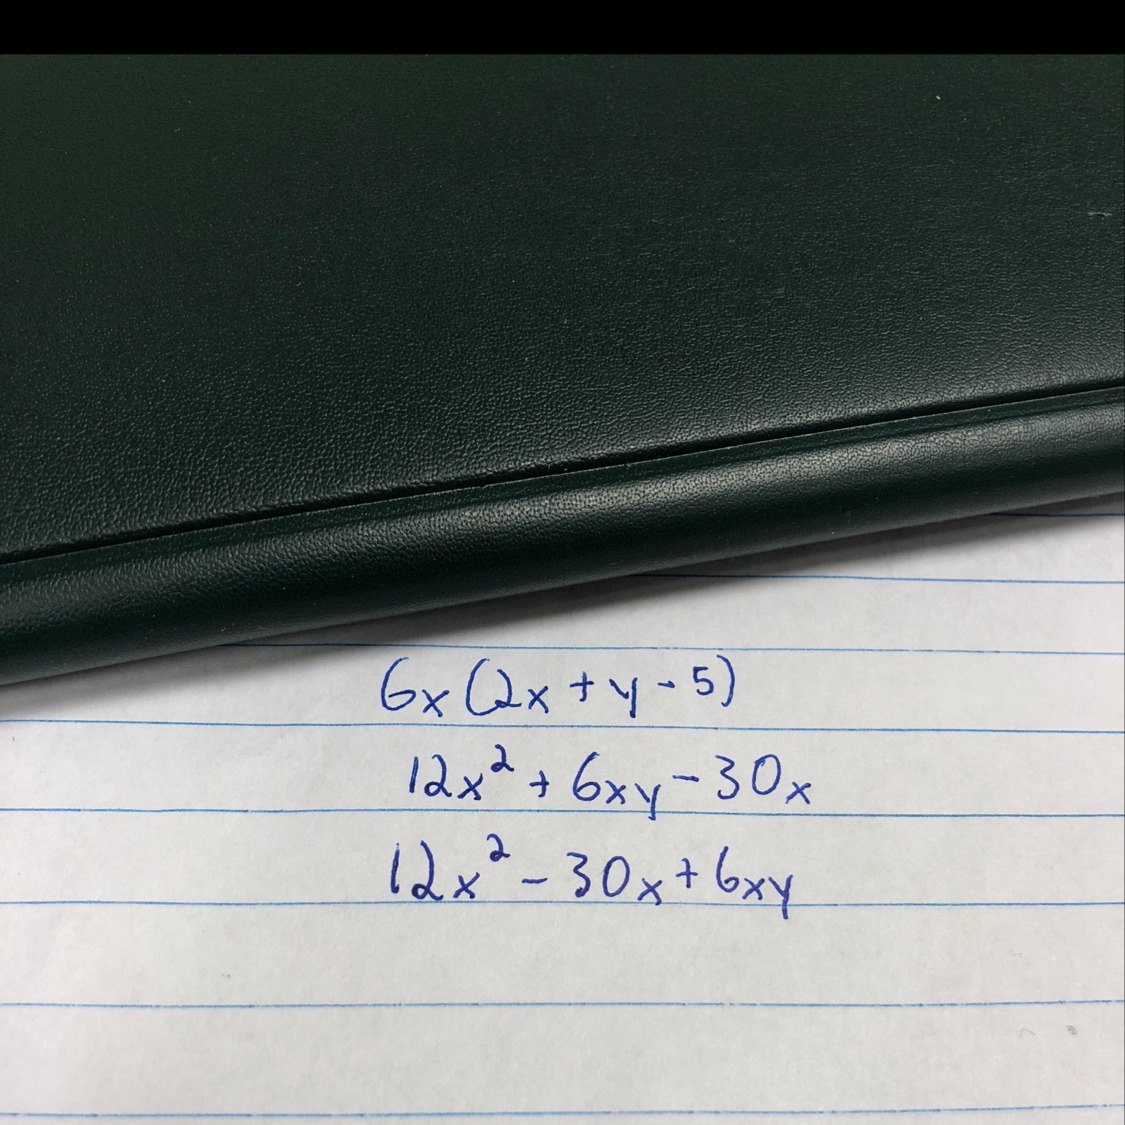 6x(2x + y - 5)
12x² + 6xy - 30x
12x² - 30x + 6xy